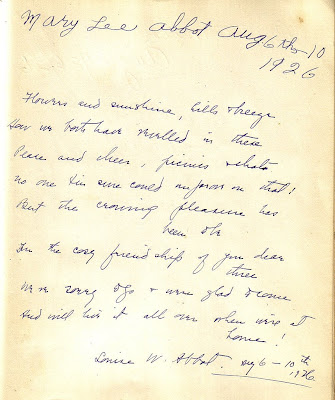 Mary Lee Abbot Aug 6th-10
1926
Flowers and sunshine, hills & breeze
How we both have revelled in these
Peace and cheer, picnics & chats
No one I'm sure could improve on that!
But the crowning pleasure has
been the
In the cosy friendship of you dear
three
We're sorry to go & were glad to come
And will live it all over when we're at
home!
Louise W. Abbot. Aug 6-10th
1926